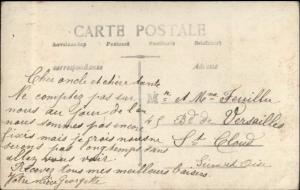 CARTE POSTALE
Correspondance
Adresse
Cher oncle et chère tante
Ne comptez pas sur
nous au jour de l'an
nous sommes pas encore
fixés mais je crois nous ne
serons pas longtemps sans
allez vous voir
Recevez tous meilleurs baisers
Votre nièce Georgette
Mr et Mme Feuillu
45 Bd de Versailles
St Cloud
Seine et Oise